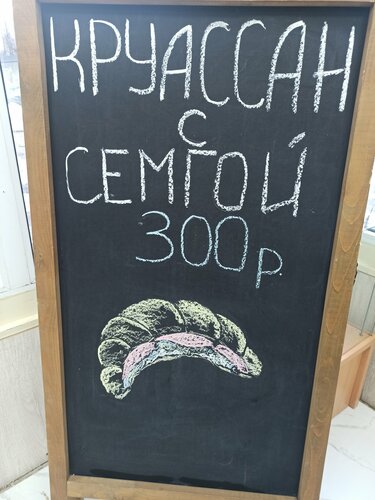 КРУАССАН
С
СЕМГОЙ
300р.